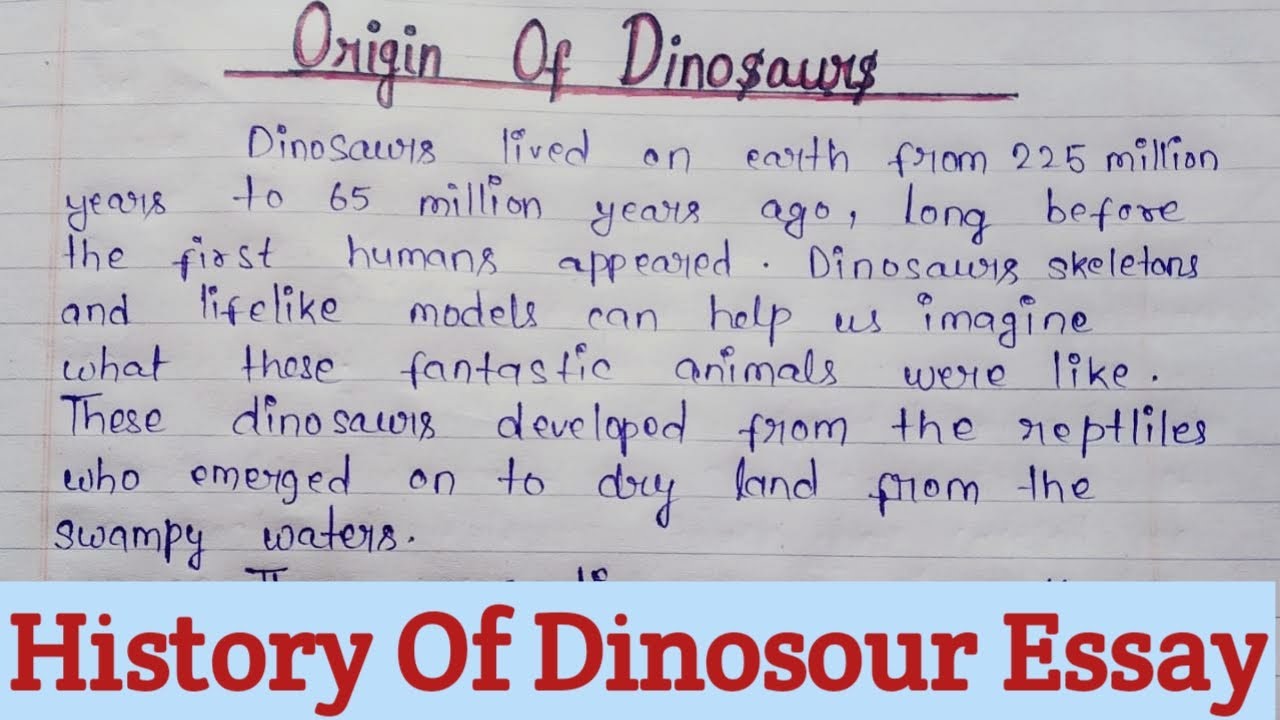 Origin Of Dinosaurs
Dinosaurs lived on earth from 225 million
years to 65 million years ago, long before
the first humans appeared. Dinosaurs skeletons
and lifelike models can help us imagine
what these fantastic animals were like.
These dinosaurs developed from the reptliles
who emerged on to dry land from the
swampy waters.
History Of Dinosour Essay